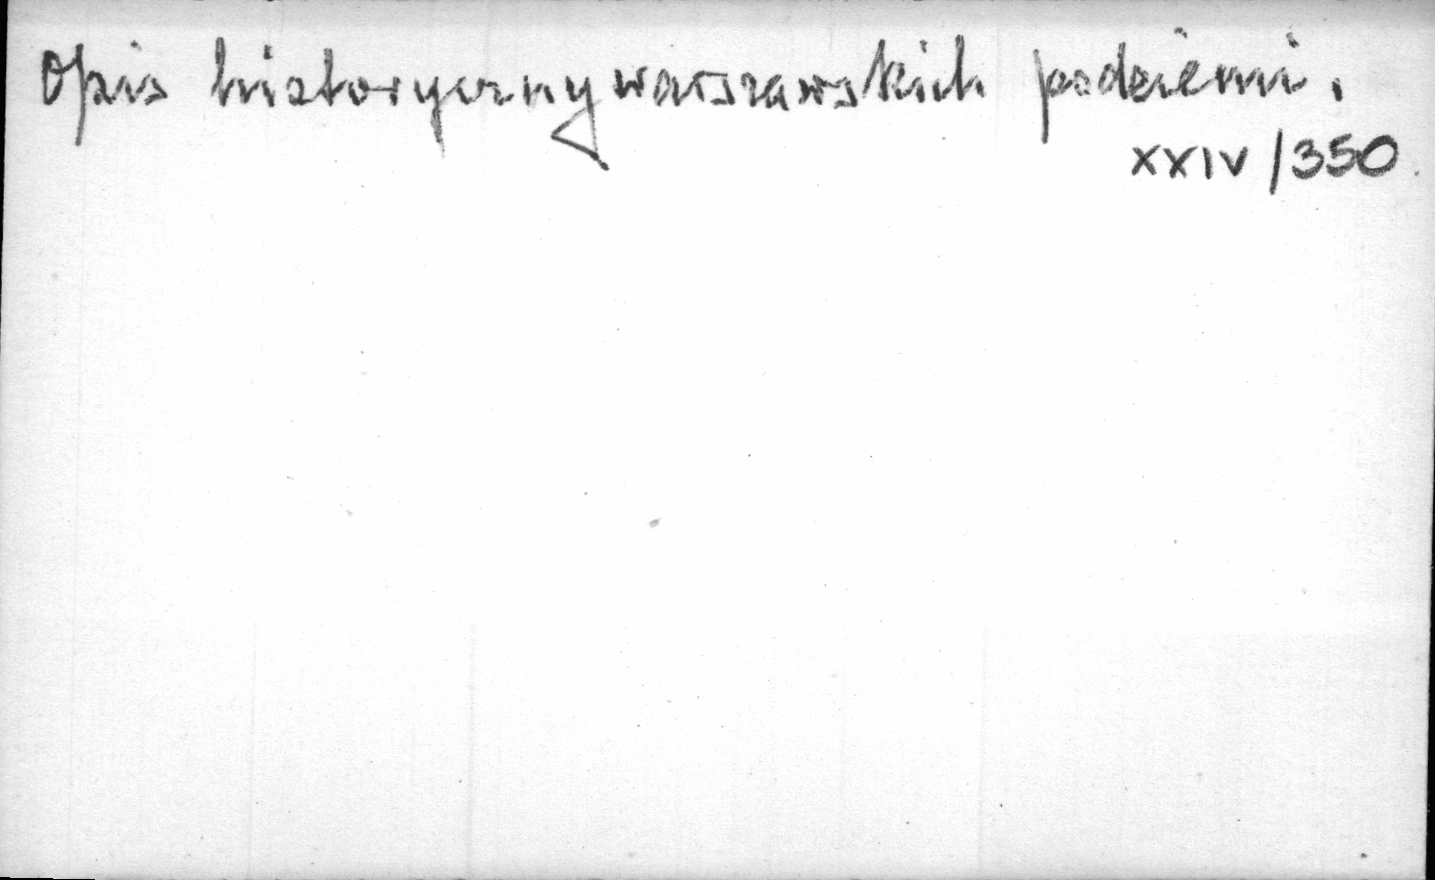 Opis historyczny warszawskich podziemi.
XXIV/350.